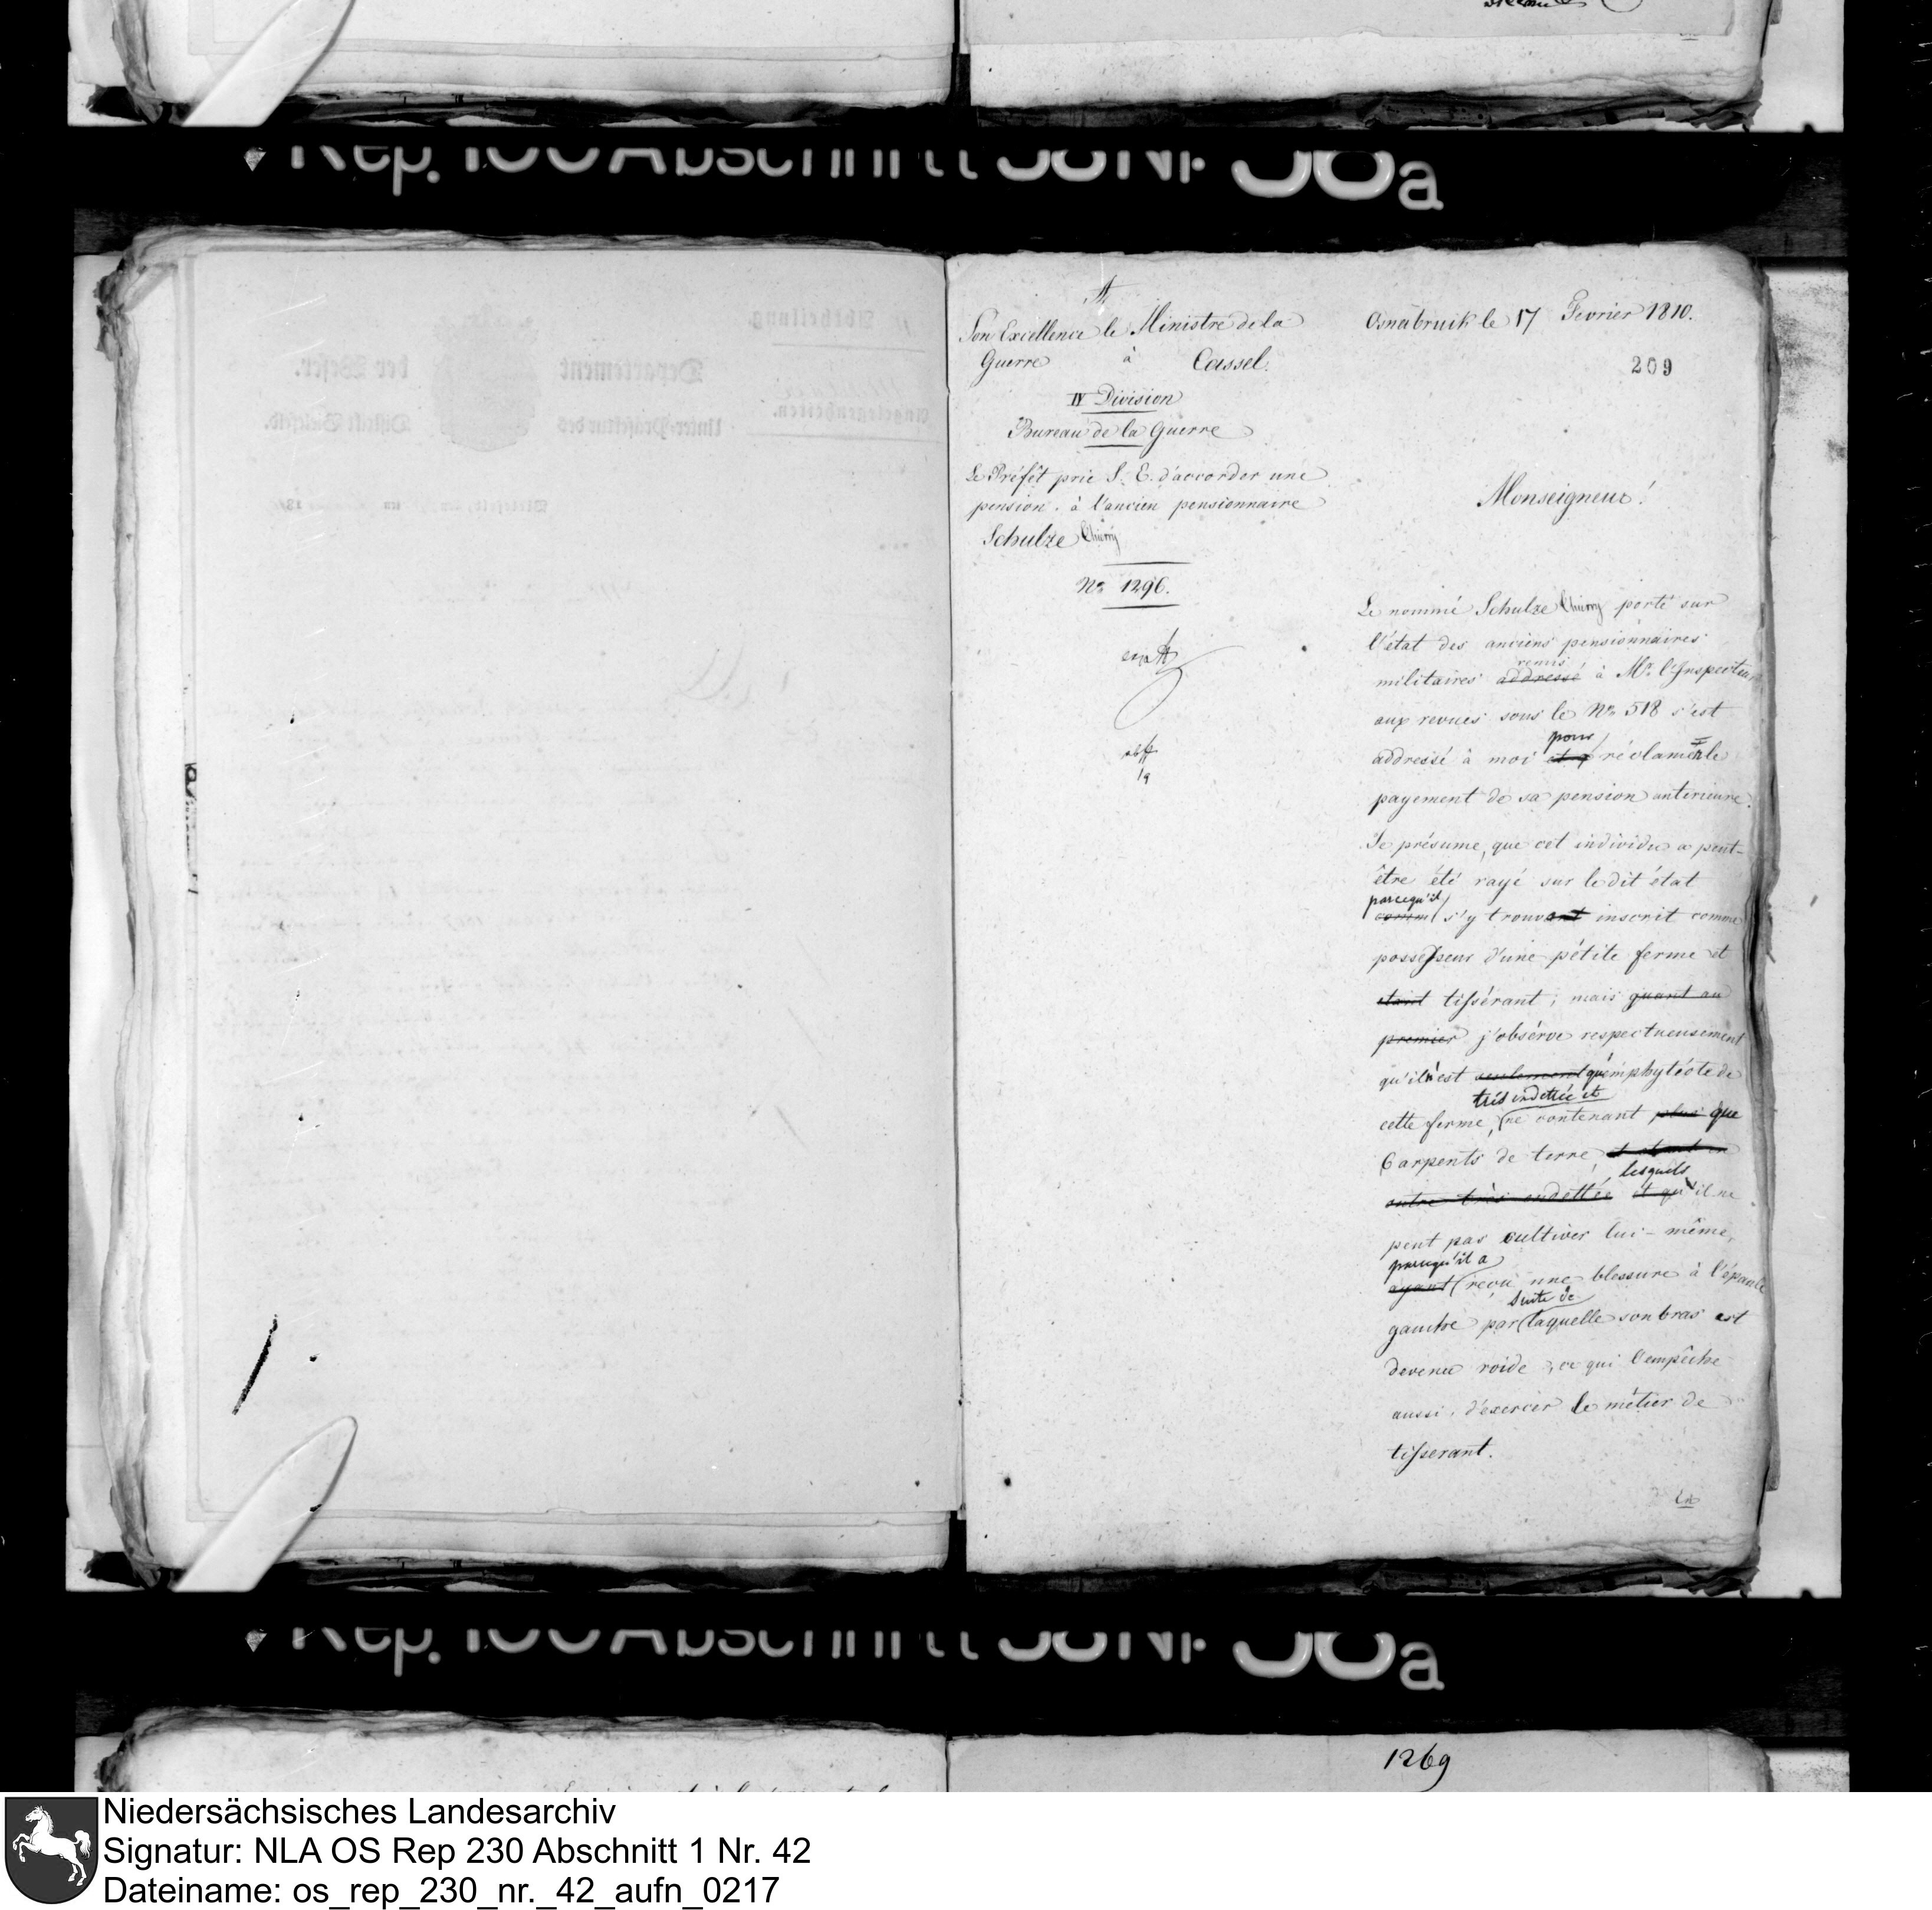 Rep. 100 Abschnitt 58 Nr 38a
A
Son Excellence le Ministre de la
Guerre à Cassel.
IV Division
Bureau de la Guerre
Le Préfêt prie S. E. d'accorder une
pension à l'ancien pensionnaire
Schulze Thierry
No 1296.
Osnabruik le 17 Fevrier 1810.
209
Monseigneur!
Le nommé Schulze Thierry porté sur
l'état des anciens pensionnaires
remis
militaires addressé à Mr. l'Inspecteur
aux revues sous le No 518 s'est
pour
addressé à moi et a réclamer le
payement de sa pension antérieure.
Je présume, que cet individu a peut-
être été rayé sur le dit état
parcequ'il
comme s'y trouvant inscrit comme
possesseur d'une pétite ferme et
étant tissérant; mais quant au
premier j'obsérve respectueusement
qu'il n'est seulement qu'emphytéote de
très endettée et
cette ferme, ne contenant plus que
6 arpents de terre, et étant en
lesquels
outre très endettée et qu'il ne
peut pas cultiver lui-même,
parcequ'il a
ayant reçu une blessure à l'épaule
suite de
gauche par laquelle son bras est
devenu roide, ce qui l'empêche
aussi d'exercer le métier de
tisserant.
Rep. 100 Abschnitt 58 Nr 38a
1269
Niedersächsisches Landesarchiv
Signatur: NLA OS Rep 230 Abschnitt 1 Nr. 42
Dateiname: os_rep_230_nr._42_aufn_0217